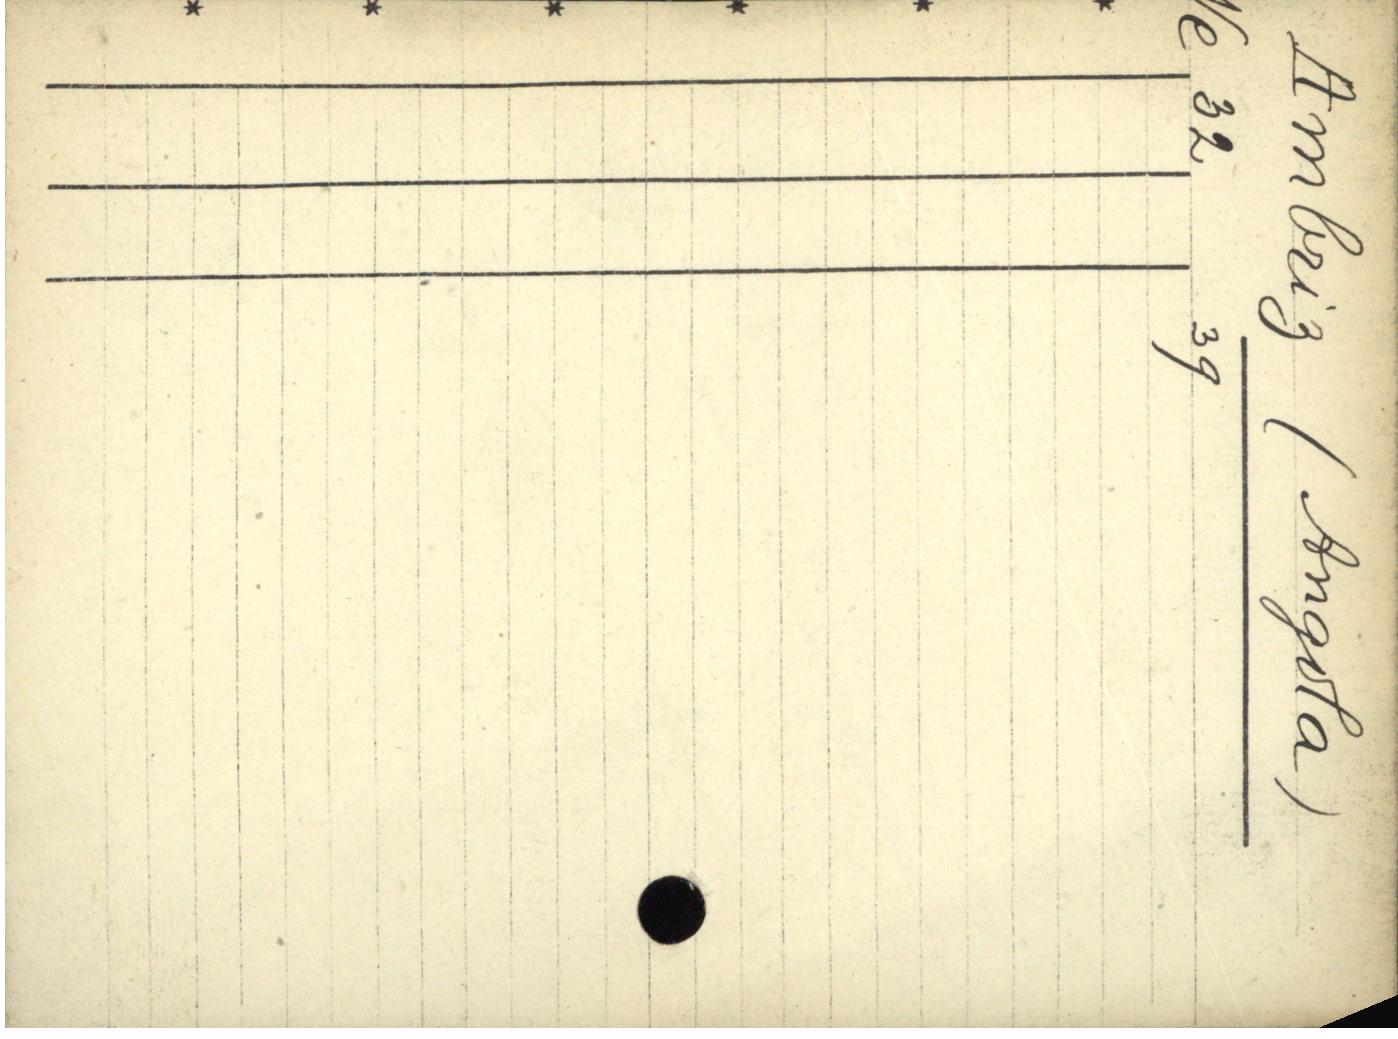 Ambriz (Angola)
Ne 32 39
*
*
*
*
*
*